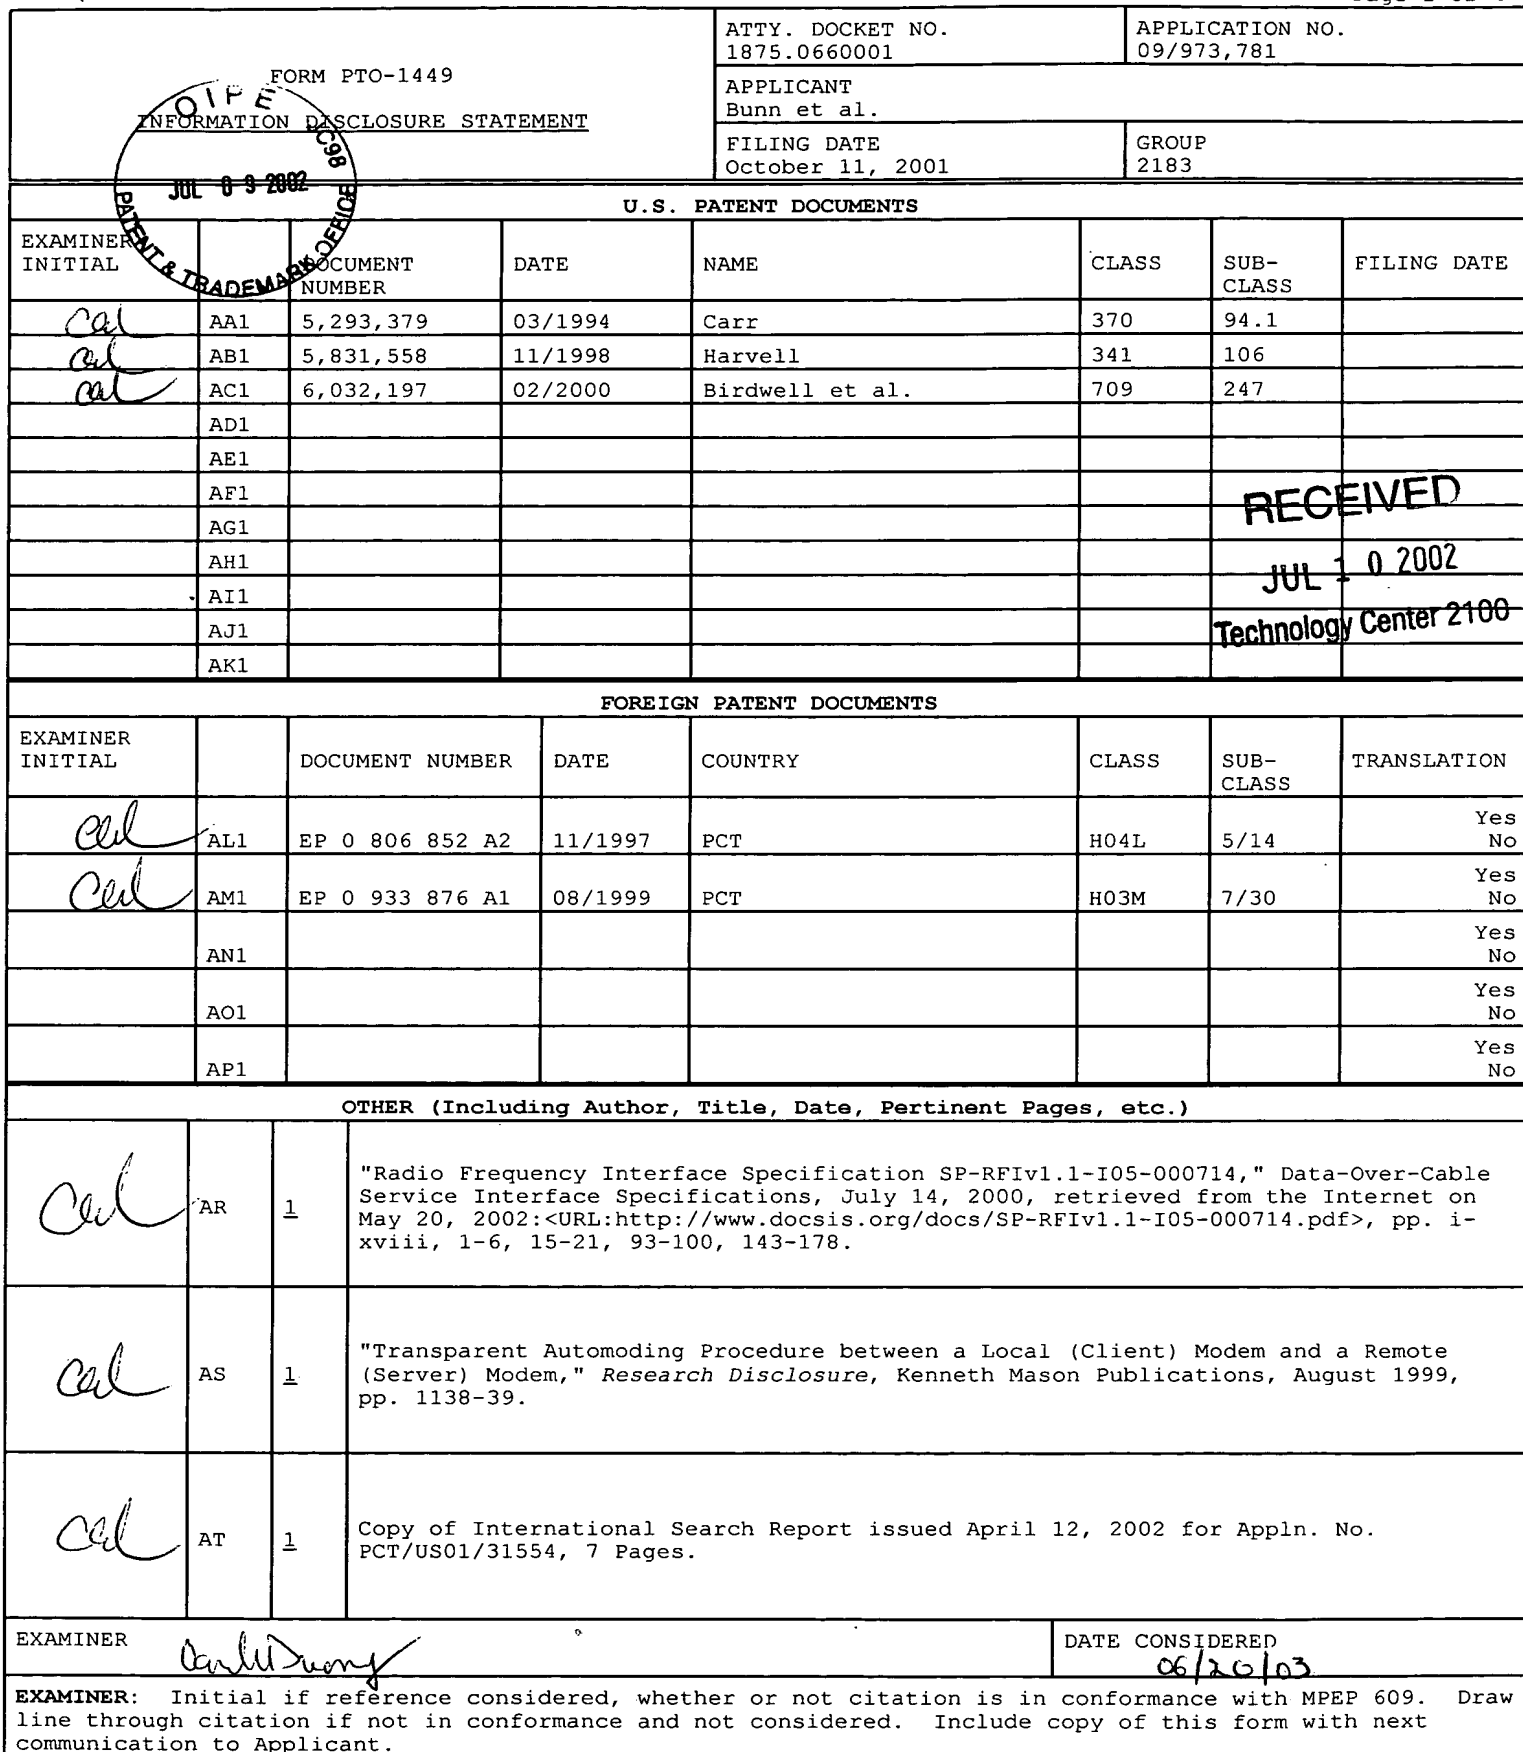 ATTY. DOCKET NO.
1875.0660001
APPLICATION NO.
09/973,781
FORM PTO-1449
INFORMATION DISCLOSURE STATEMENT
APPLICANT
Bunn et al.
FILING DATE
October 11, 2001
GROUP
2183
OIPE JC98
JUL 0 9 2002
PATENT & TRADEMARK OFFICE
U.S. PATENT DOCUMENTS
EXAMINER INITIAL DOCUMENT NUMBER DATE NAME CLASS SUB-CLASS FILING DATE
AA1 5,293,379 03/1994 Carr 370 94.1
AB1 5,831,558 11/1998 Harvell 341 106
AC1 6,032,197 02/2000 Birdwell et al. 709 247
AD1
AE1
AF1
RECEIVED
AG1
AH1
JUL 1 0 2002
AI1
AJ1
Technology Center 2100
AK1
FOREIGN PATENT DOCUMENTS
EXAMINER INITIAL DOCUMENT NUMBER DATE COUNTRY CLASS SUB-CLASS TRANSLATION
AL1 EP 0 806 852 A2 11/1997 PCT H04L 5/14 Yes No
AM1 EP 0 933 876 A1 08/1999 PCT H03M 7/30 Yes No
AN1 Yes No
AO1 Yes No
AP1 Yes No
OTHER (Including Author, Title, Date, Pertinent Pages, etc.)
AR 1
"Radio Frequency Interface Specification SP-RFIv1.1-I05-000714," Data-Over-Cable
Service Interface Specifications, July 14, 2000, retrieved from the Internet on
May 20, 2002:<URL:http://www.docsis.org/docs/SP-RFIv1.1-I05-000714.pdf>, pp. i-
xviii, 1-6, 15-21, 93-100, 143-178.
AS 1
"Transparent Automoding Procedure between a Local (Client) Modem and a Remote
(Server) Modem," Research Disclosure, Kenneth Mason Publications, August 1999,
pp. 1138-39.
AT 1
Copy of International Search Report issued April 12, 2002 for Appln. No.
PCT/US01/31554, 7 Pages.
EXAMINER
DATE CONSIDERED
06/20/03
EXAMINER: Initial if reference considered, whether or not citation is in conformance with MPEP 609. Draw
line through citation if not in conformance and not considered. Include copy of this form with next
communication to Applicant.